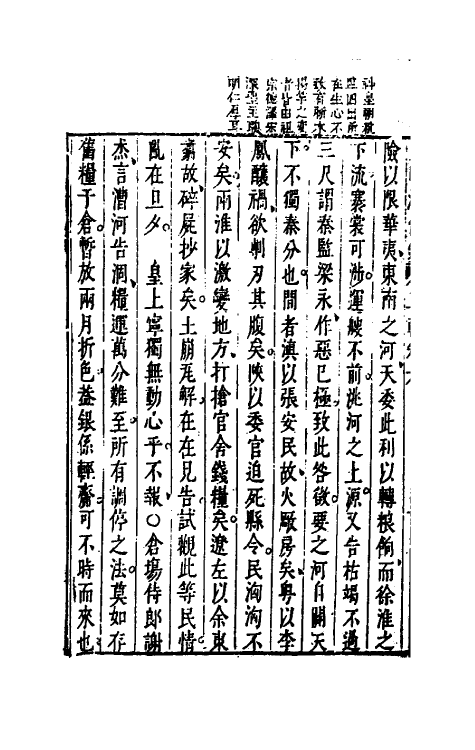 明仁厚耳
險以限華夷東南之河天委此利以轉粮餉而徐淮之
下流褰裳可涉運艘不前洮河之上源又告枯竭不過
三尺謂秦監梁永作惡已極致此咎徵要之河自關天
下不獨秦分也間者滇以張安民故火厰房矣粤以李
鳳釀禍欲剚刃其腹矣陝以委官迫死縣令民洶洶不
安矣兩淮以激變地方打搶官舍錢糧矣遼左以余東
翥故碎屍抄家矣土崩瓦解在在見告試觀此等民情
亂在旦夕 皇上寧獨無動心乎不報○倉塲侍郎謝
杰言漕河告涸糧運萬分難至所有調停之法莫如存
舊糧于倉暫放兩月折色葢銀係輕齎可不時而來也